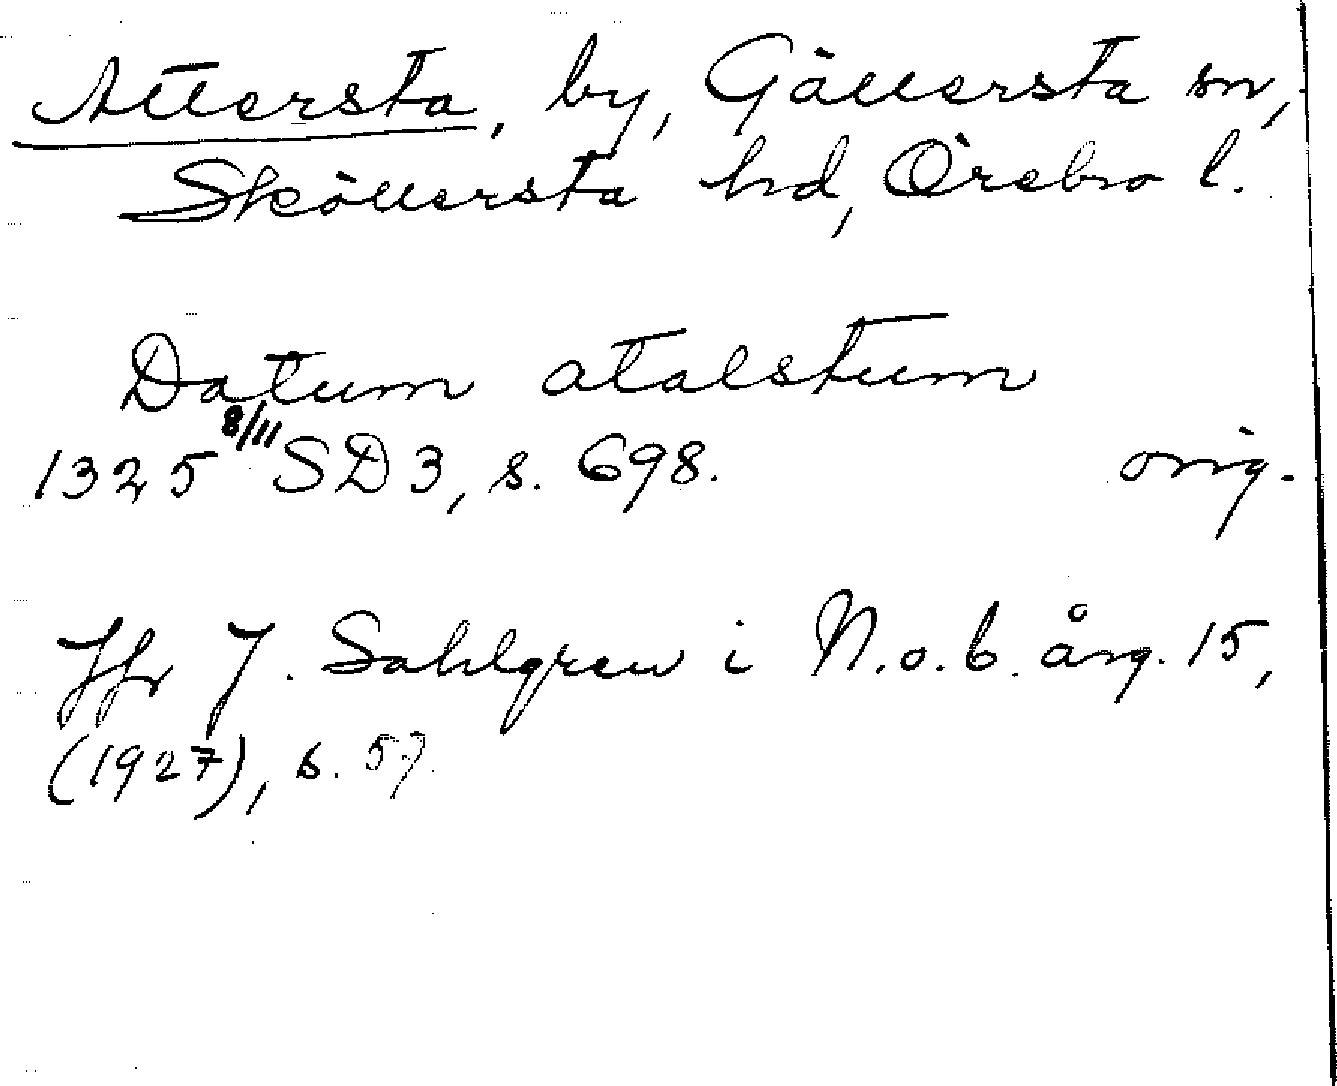 Attersta, by, Gällersta sn,
Sköllersta hd, Örebro l.
Datum atalstum
1325 8/11 SD 3, s. 698. orig.
Jfr J. Sahlgren i N.o.b. årg. 15,
(1927), s. 57.